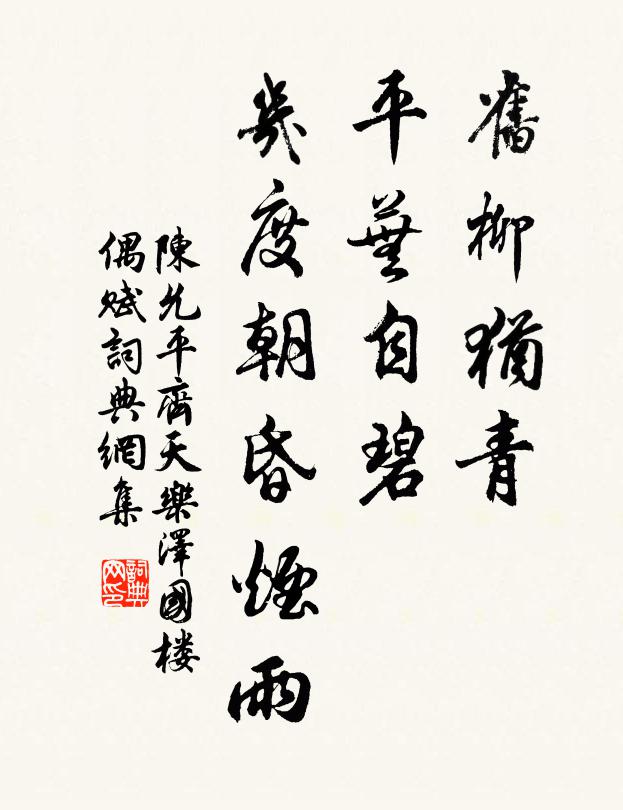 舊柳猶青
平蕪自碧
幾度朝昏煙雨
陳允平齊天樂澤國楼
偶赋詞典網集
詞典网印